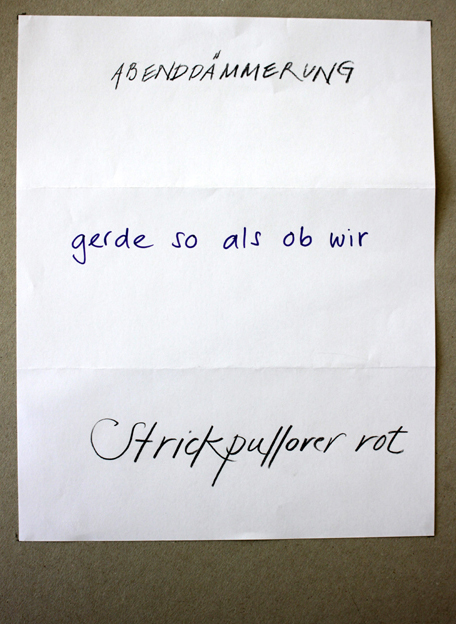 ABENDDÄMMERUNG
gerde so als ob wir
Strickpullover rot